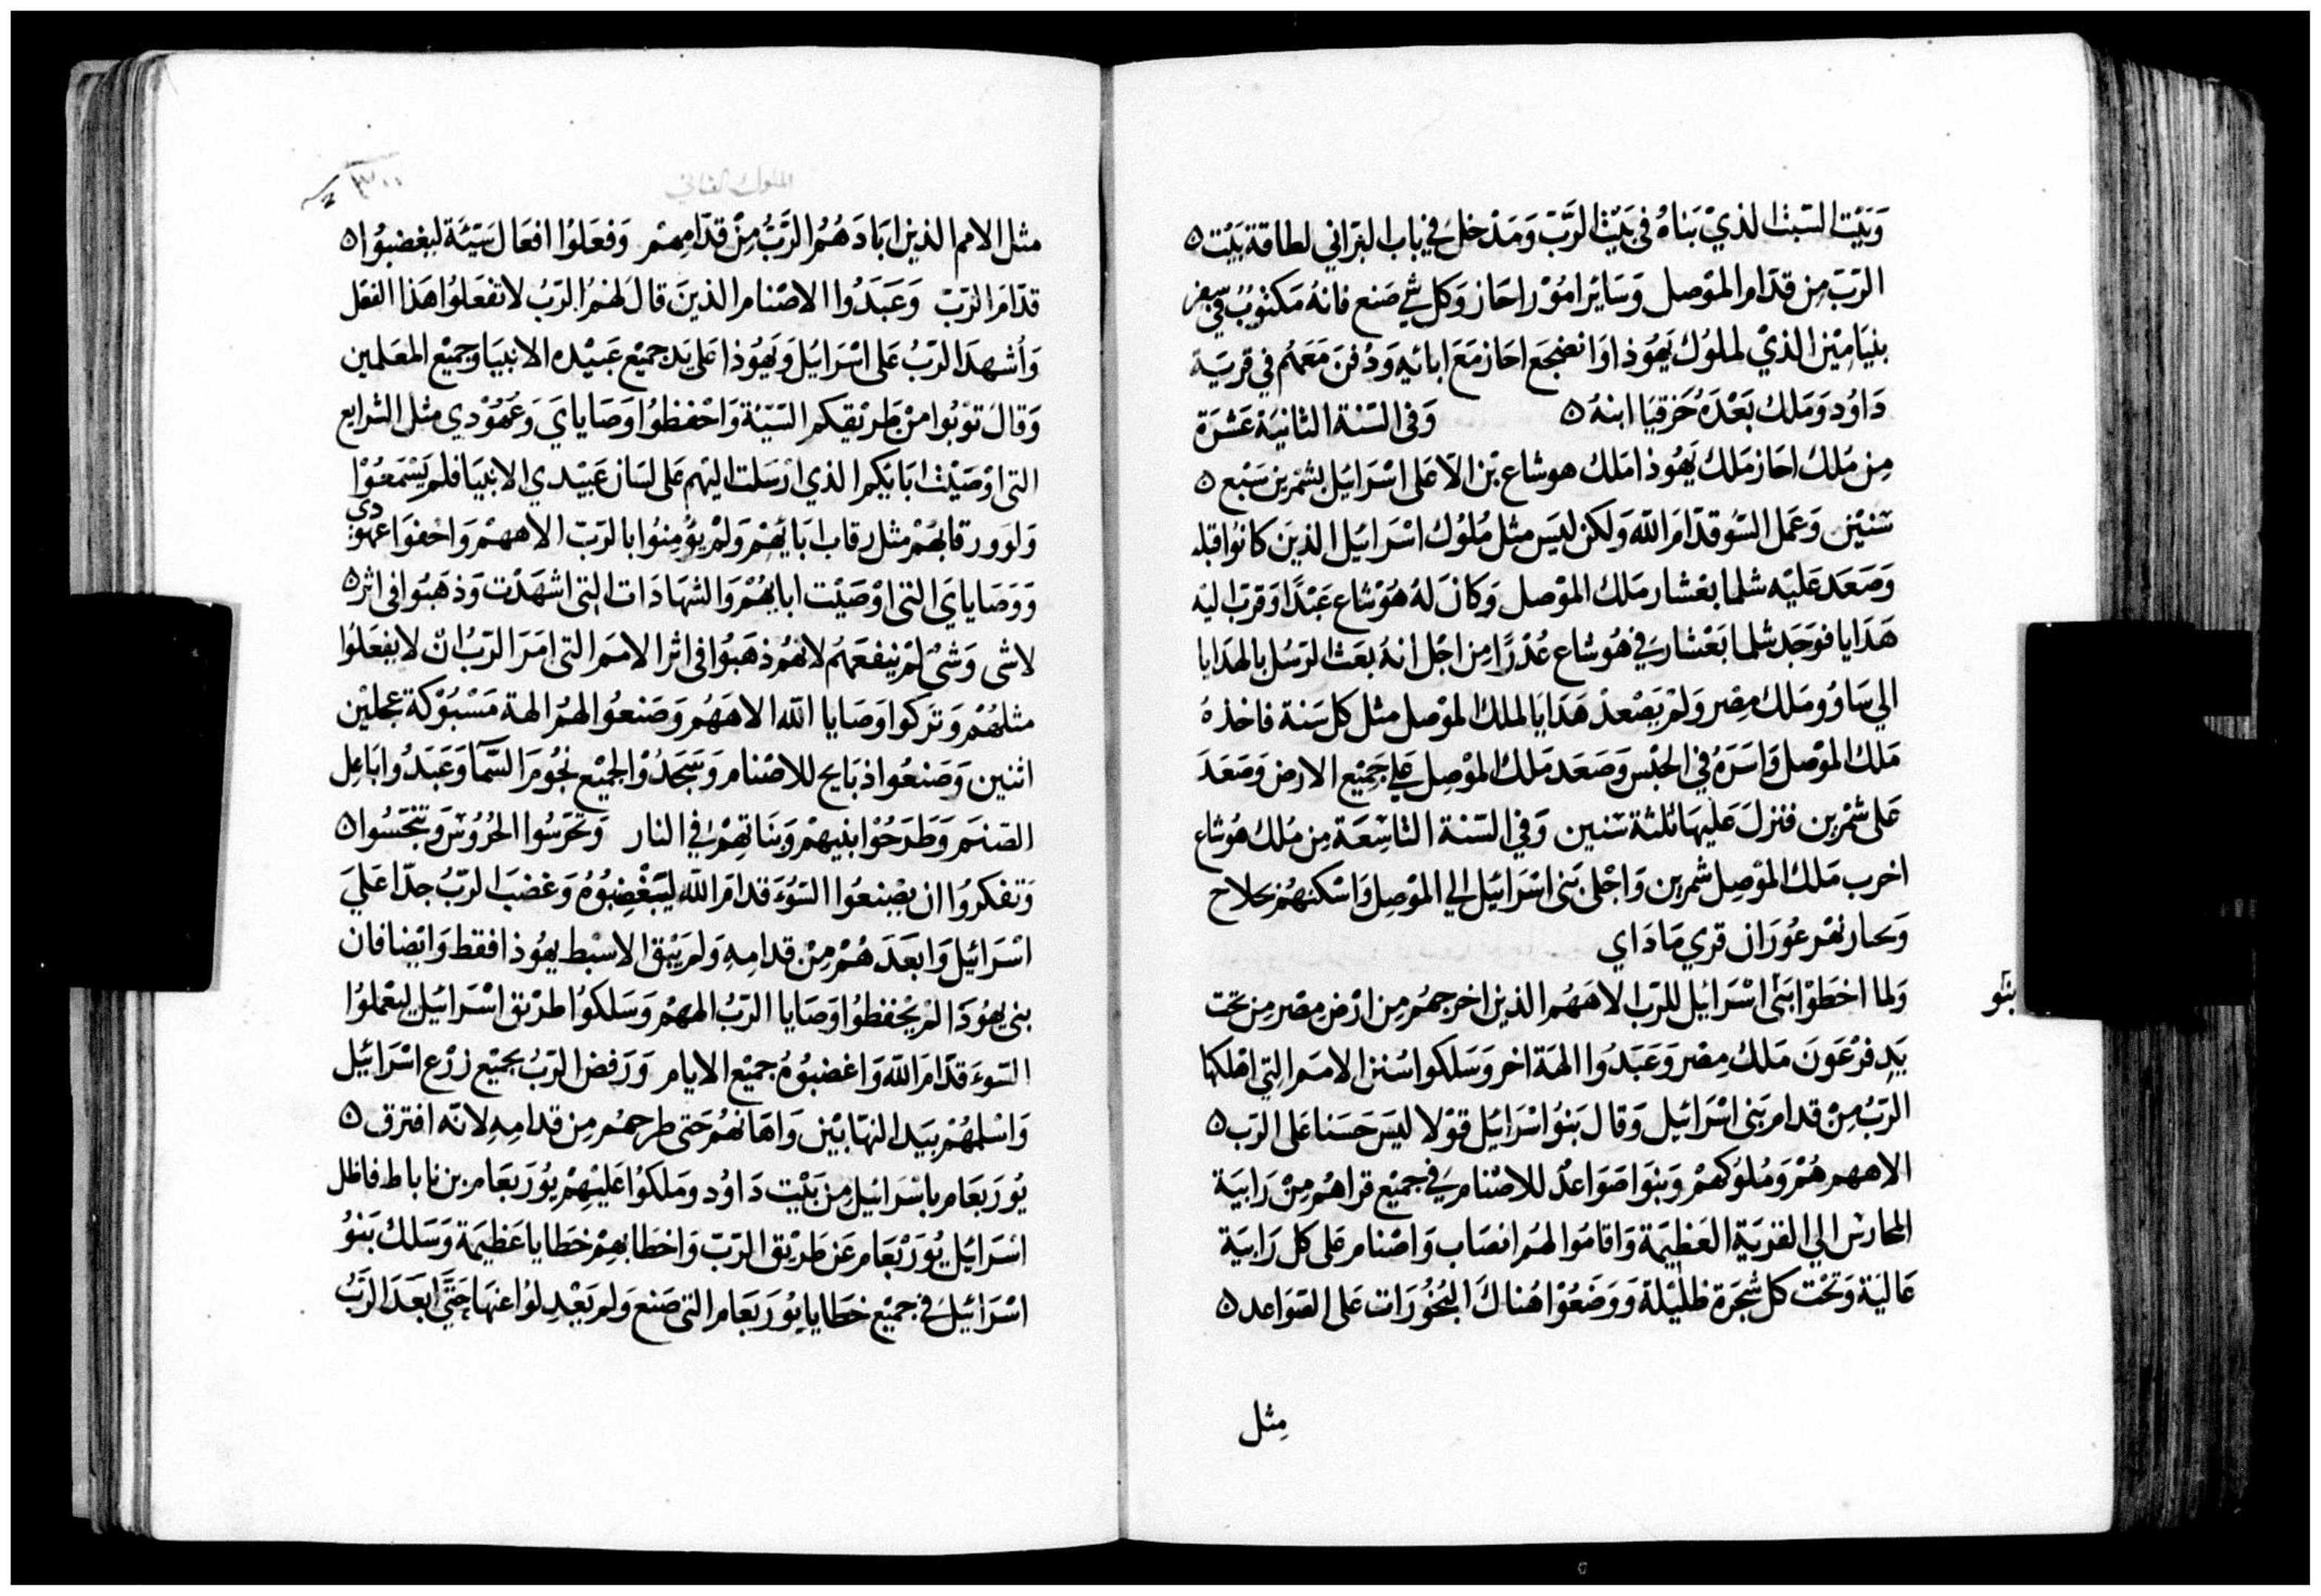 وَبَيْت السَبت الذيْ بَناهُ في بَيْت الرَّبّ وَمَدْخل في باب البَرّاني لطاقة بَيْت ه
الرَبّ مِن قدّام المَوْصل وَسَايَر امُوْر احَاز وَكل شي صَنع فانهُ مَكتوبٌ في سفر
بنيَامِيْن الذيْ لملوك يَهُوذا وَانضجَع احَاز مَعَ ابائِهِ وَدُفنَ مَعَهُم في قريَة
دَاوُد وَمَلك بَعْدَهُ حَزقيَا ابنهُ ه وَفى السّنة الثانيَة عَشَرَة
مِن مُلك احَاز مَلك يَهُوذا مَلك هوشاع بْن الا عَلى اسْرَائيل بشمْرين سَبْع ه
سَنيْن وَعَمل السُو قدَامَ الله وَلكن ليْسَ مثل مُلُوك اسْرَائيل الذيْنَ كانوُا قبله
وَصَعَد عَليْه شلما بعْشار مَلك الموْصل وَكانَ لهُ هُوْشاع عَبْدًا وَقرّب اليه
هَدَايا فوَجَد شلما بَعْشار في هُوشاع عُذرًا مِن اجْل انهُ بعَث الرّسُل بالهدَايا
الي سَاوُو مَلك مِصْر وَلمْ يَصْعدْ هَدَايا لملك الموْصل مثل كل سَنة فاخذهُ
مَلك الموْصل وَاسَرَهُ في الحبْس وَصَعَد مَلك المَوْصِل عَلي جَميْع الارض وَصَعَدَ
عَلى شمْرين فنزلَ عَليهَا ثلثة سَنين وَفي السّنة التاسِعَة مِن مُلك هُوشاع
اخرب مَلك المَوْصِل شمرين وَاجْلى بَنى اسْرَائيل الي المَوْصِل وَاسْكنهُم بحلاح
وَبحار نهْر عُوزان قري مَادَاي
وَلما اخطَوْا بَنى اسْرَائيل للرّب الاهَهُم الذين اخرجهُم مِن ارْض مصْر مِن تحت
بنو
يَدِ فرْعَوْنَ مَلك مِصْر وَعَبَدُوا الهَة اخر وَسَلكوا سُنن الامَم التي اهلكها
الرَبُ مِنْ قدام بَنى اسْرَائيل وَقال بَنوُ اسْرَائيل قوْلا ليْسَ حَسَنا عَلى الرَب ه
الاههم هُمْ وَمُلوُكهمْ وَبنوَا صَوَاعدْ للاصْنام في جميْع قراهُم مِنْ رَابيَة
المحارسْ الي القريَة العَظِيْمَة وَاقامُوا لهُم انصَاب وَاصْنام عَلى كل رَابيَة
عَاليَة وَتحْت كل شَجَرة ظليْلة وَوَضَعُوْا هُناكَ البخوُرَات عَلى الصَوَاعد ه
مِثل
الملوك الثاني
٣٠٠
مثل الامم الذين ابَادَهُمُ الرَّبُّ مِنْ قدّامِهِمْ وَفعَلوُا افعَال سَيّئَة ليغضبوُا ه
قدّامَ الرَبّ وَعَبَدُوا الاصْنام الذينَ قالَ لهُمُ الرّبُ لا تفعَلوُا هَذا الفعْل
وَأشْهدَ الرّبُ عَلى اسْرَائيل وَيَهُوذا عَلى يَد جميْع عَبيْده الانبيَا وجميْع المعَلمين
وَقالَ توْبُوا مِنْ طرْيقكم السَيّئة وَاحْفظوُا وَصَايايَ وَعُهُوْدي مثل الشرايع
التى اوْصَيْت ابَايكم الذي ارْسَلت اليْهم عَلى لسَان عَبيْدي الانبيَا فلم يَسْمَعوُا
وَلوَو رقابهُمْ مثل رقاب ابَايهُمْ وَلمْ يؤْمِنوُا بالرَبّ الاههمْ وَاخفوَا عهودي
وَوَصَايايَ التى اوْصَيْت ابايهُمْ وَالشهَادَات التى اشهَدْت وَذهَبوُا فى اثر ه
لاشى وَشئ لمْ ينفعَهُم لانهُم ذهَبوُا فى اثر الامَم التى امَرَ الرّبُ انْ لا يفعَلوُا
مثلهُمْ وَتَركوا وَصَايا الله الاهَهُم وَصَنعوُا لهُم الهة مَسْبُوْكة عجلين
اثنين وَصَنعُوا ذبَايح للاصْنام وَسَجَدُوْا لجميْع نجُومَ السَّمَآ وَعَبَدُوا باعِل
الصّنم وَطَرَحُوْا بنيهمْ وَبَنَاتهمْ في النار وَتحَرسُوا الحرُوسْ وَتنحّسُوا ه
وَتفكرُوا ان يصْنعُوا السُوَء قدامَ الله ليَبْغْضِبُوُهُ وَغضبَ الرَبُ جدّا عَليَ
اسْرَائيل وَابعَدَهُمْ مِنْ قدامِهِ وَلم يَبْق الاسْبط يهُوذا فقط وَايْضا فان
بنى يهُوَذا لمْ يحْفظوُا وَصَايا الرَبُ الههمْ وَسَلكوُا طرْيق اسْرَائيل ليعْملوُا
السّوءَ قدّامَ الله وَاغضبوُهُ جميْع الايام وَرَفض الرَبُ بجميْع زرْع اسْرَائيل
وَاسْلمهُمْ بيَد النهّابيْن وَاهَانهُم حَتى طرحهُم مِن قدامِهِ لانه افترق ه
يُورَبعَام باسْرَائيل مِن بَيْت دَاوُد ومَلكوُا عَليْهمْ يُورَبعَام بن ناباط فاظل
اسْرَائيل يُوْرَبْعَام عَن طَريْق الرَبّ وَاخطا بهمْ خطايا عَظيمَة وَسَلك بَنوُ
اسْرَائيل في جميْع خطايا يوُرَبعَام التى صَنع وَلم يَعْدِلوُا عنهَا حَتَّى ابَعَدَ الرَّبُ